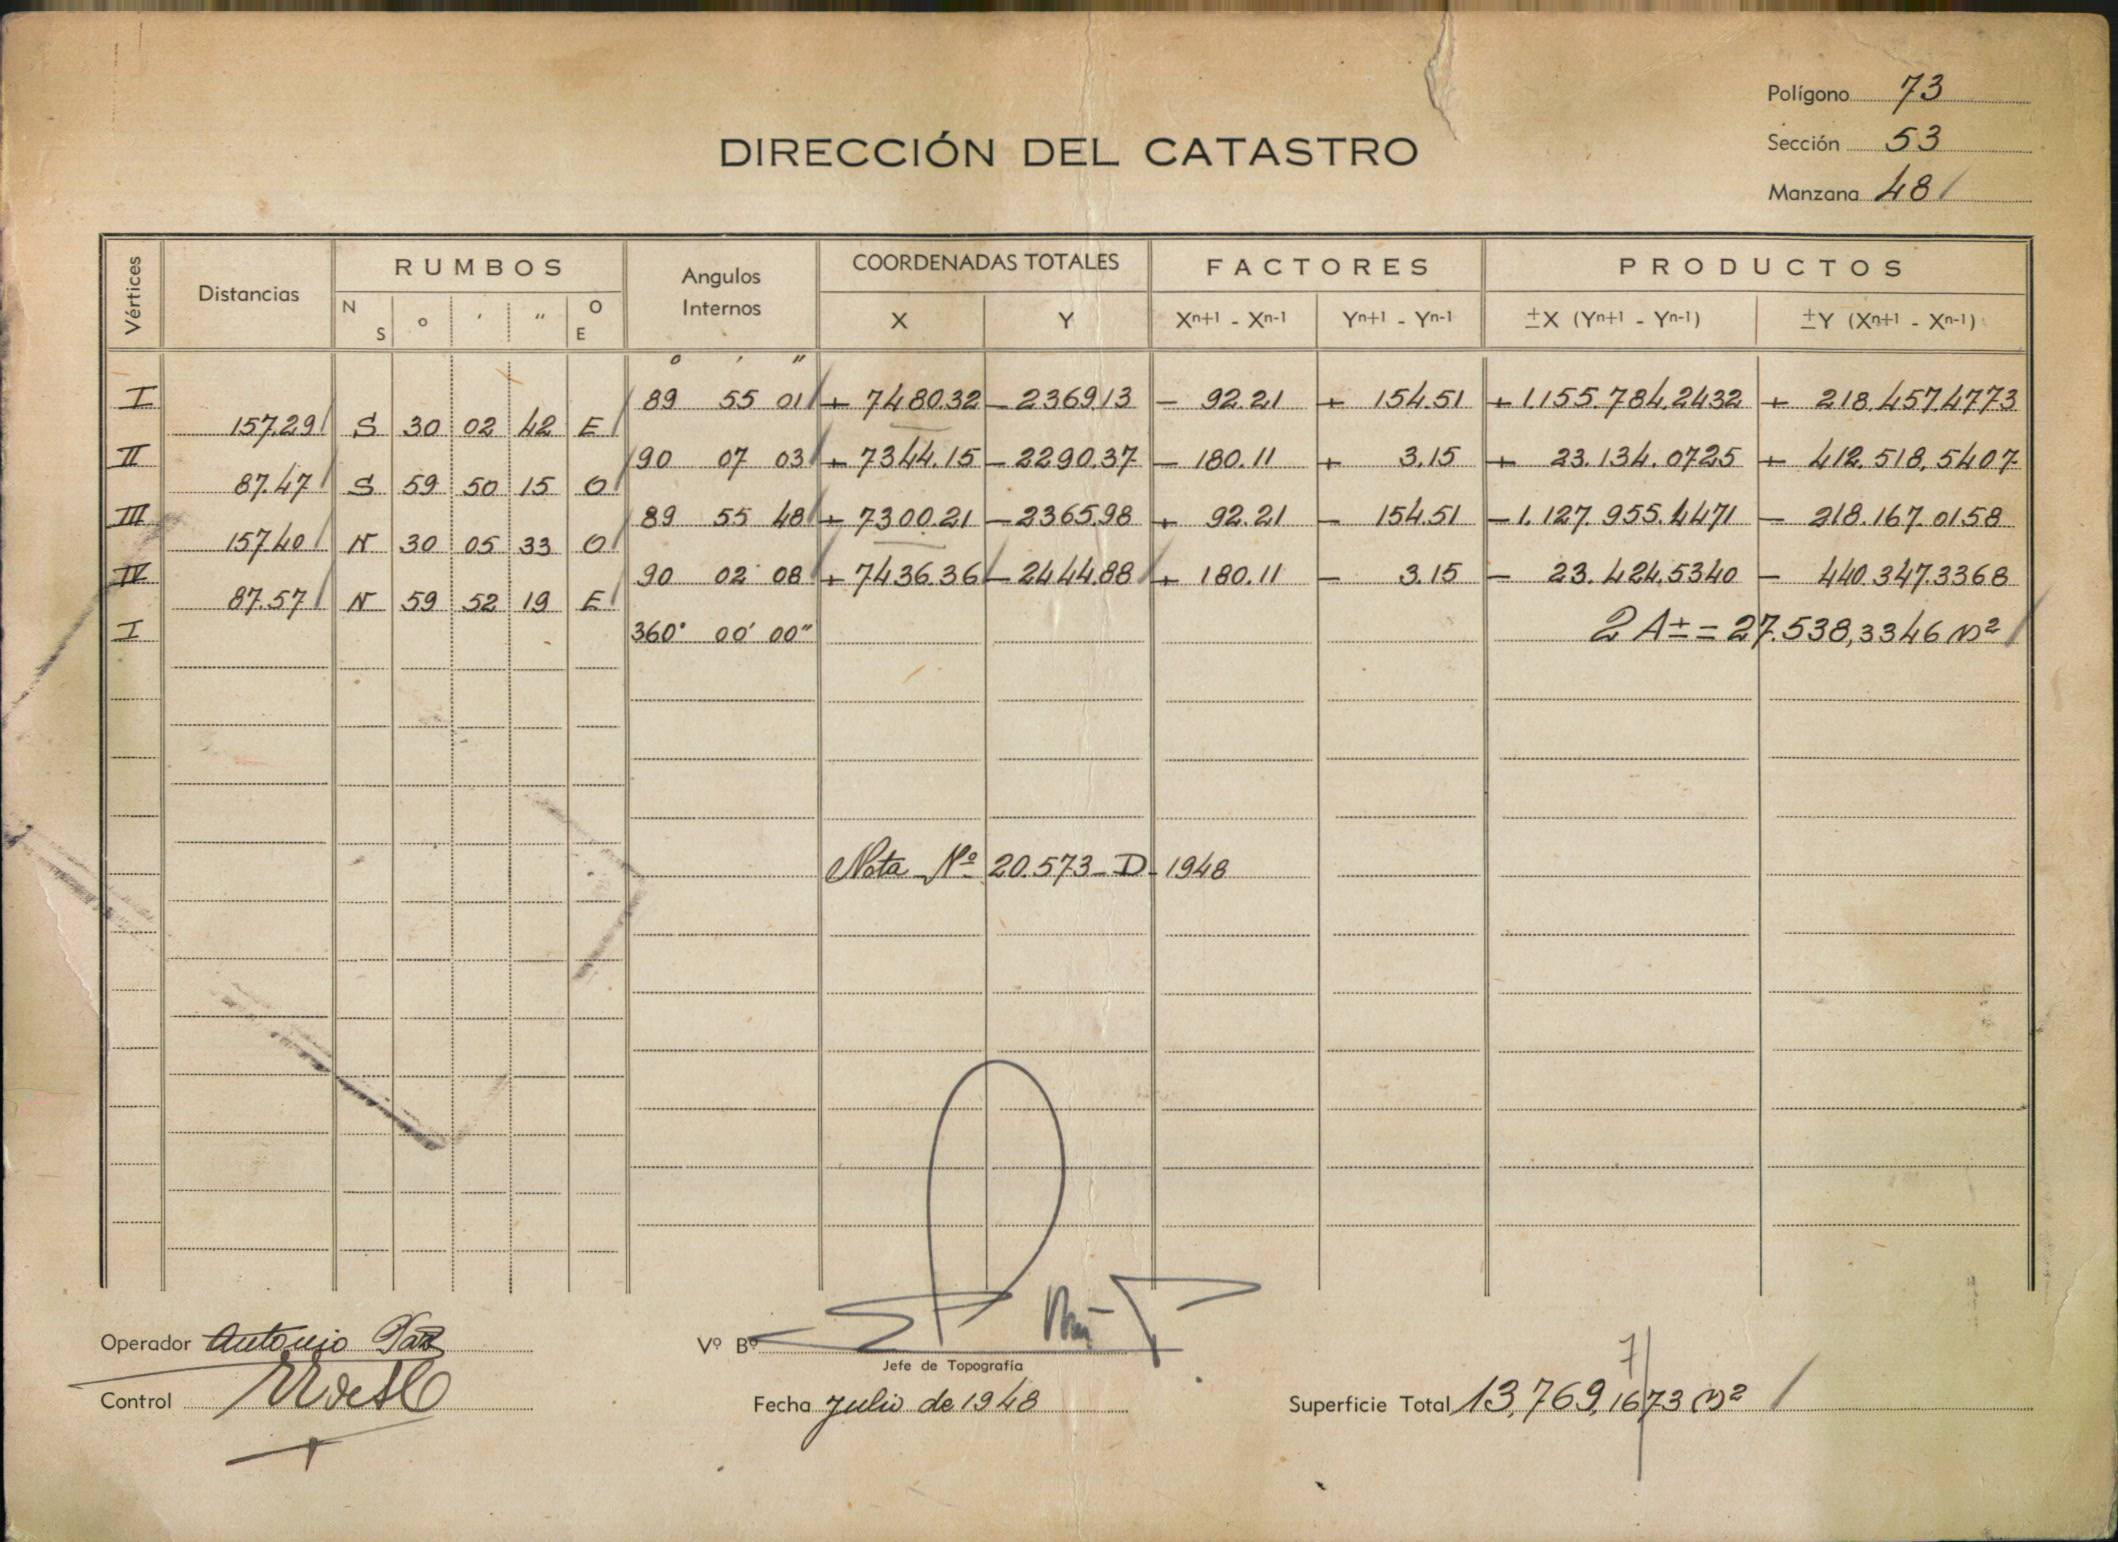 Polígono 73
DIRECCIÓN DEL CATASTRO
Sección 53
Manzana 48
Vértices Distancias RUMBOS Angulos Internos COORDENADAS TOTALES FACTORES PRODUCTOS
N S ° ' " O E X Y Xn+1 - Xn-1 Yn+1 - Yn-1 ±X (Yn+1 - Yn-1) ±Y (Xn+1 - Xn-1)
° ' "
I 89 55 01 + 7480.32 - 2369.13 - 92.21 + 154.51 + 1.155.784,2432 + 218.457.4773
157.29 S 30 02 42 E
II 90 07 03 + 7344.15 - 2290.37 - 180.11 + 3.15 + 23.134.0725 + 412.518.5407
87.47 S 59 50 15 O
III 89 55 48 + 7300.21 - 2365.98 + 92.21 - 154.51 - 1.127.955.4471 - 218.167.0158
157.40 N 30 05 33 O
IV 90 02 08 + 7436.36 - 2444.88 + 180.11 - 3.15 - 23.424.5340 - 440.347.3368
87.57 N 59 52 19 E
I 360° 00' 00" 2 A± = 27.538,3346 m²
Nota Nº 20.573 - D - 1948
Operador Antonio Paz
Vº Bº
Jefe de Topografía
7
Control
Fecha Julio de 1948
Superficie Total 13,769,1673 m²